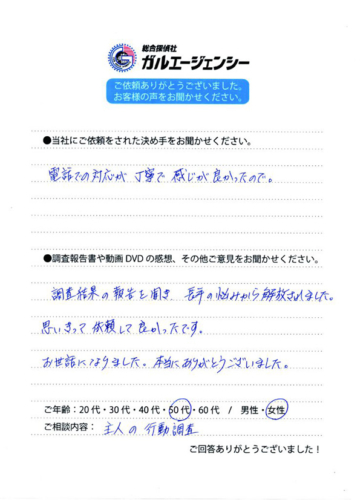 総合探偵社
ガルエージェンシー
ご依頼ありがとうございました。
お客様の声をお聞かせください。
●当社にご依頼をされた決め手をお聞かせください。
電話での対応が丁寧で感じが良かったので。
●調査報告書や動画DVDの感想、その他ご意見をお聞かせください。
調査結果の報告を聞き 長年の悩みから解放されました。
思いきって依頼して良かったです。
お世話になりました。本当にありがとうございました。
ご年齢：20代・30代・40代・50代・60代 / 男性・女性
ご相談内容： 主人の行動調査
ご回答ありがとうございました！